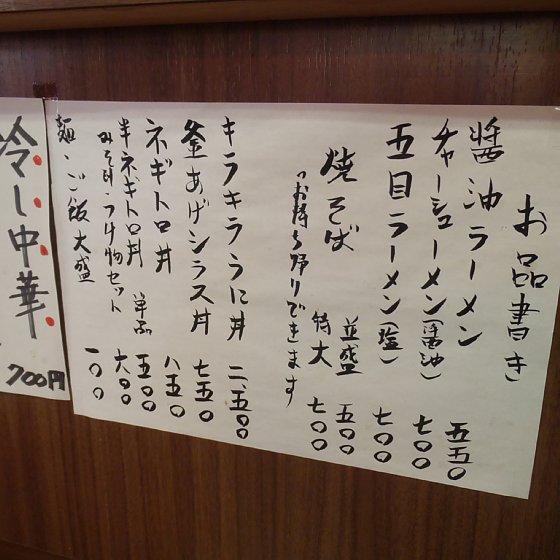 お品書き
醤油ラーメン 五五〇
チャーシューメン(醤油) 七〇〇
五目ラーメン(塩) 七〇〇
焼そば 並盛 五〇〇
特大 七〇〇
(お持ち帰りできます
キラキラうに丼 二、五〇〇
釜あげシラス丼 七五〇
ネギトロ丼 八五〇
半ネギトロ丼 単品 五〇〇
みそ汁・つけ物セット 六〇〇
麺・ご飯大盛 一〇〇
冷し中華
700円